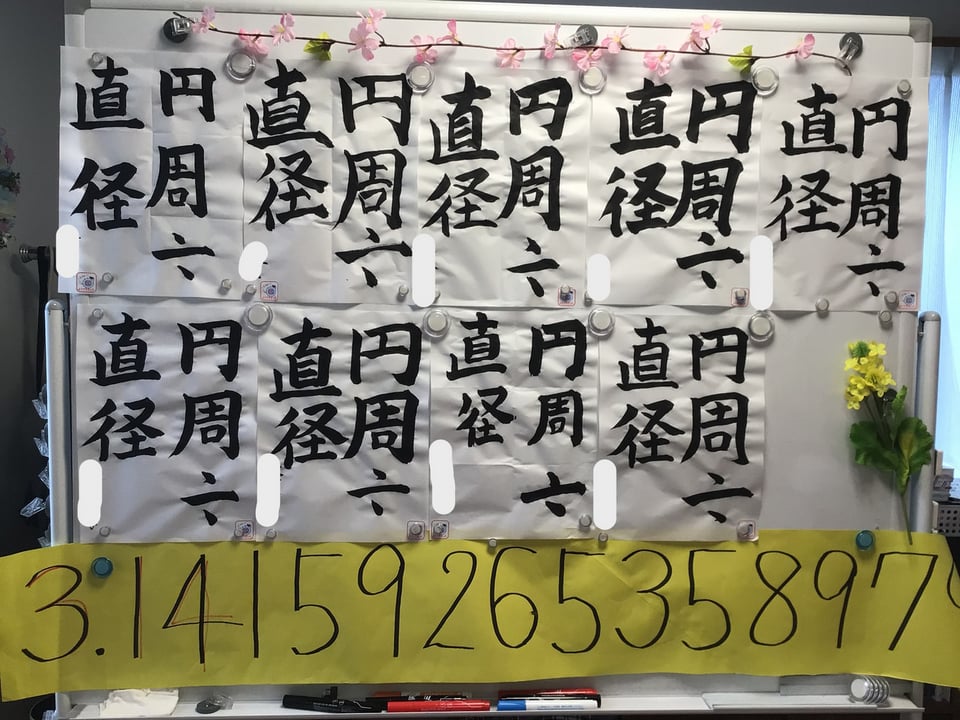 円周÷
直径
円周÷
直径
円周÷
直径
円周÷
直径
円周÷
直径
円周÷
直径
円周÷
直径
円周÷
直径
円周÷
直径
3.1415926535897